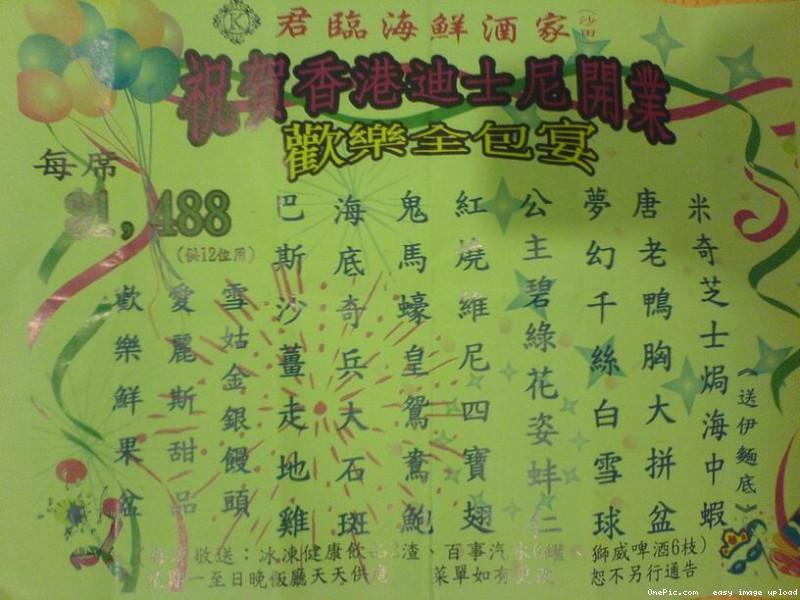 K
君臨海鮮酒家(沙田)
祝賀香港迪士尼開業
歡樂全包宴
每席
$1,488
(供12位用)
米奇芝士焗海中蝦
(送伊麵底)
唐老鴨胸大拼盆
夢幻千絲白雪球
公主碧綠花姿蚌仁
紅燒維尼四寶翅
鬼馬蠔皇鴛鴦鮑
海底奇兵大石斑
巴斯沙薑走地雞
雪姑金銀饅頭
愛麗斯甜品
歡樂鮮果盆
收送：冰凍健康飲品2渣、百事汽水6罐 獅威啤酒6枝)
一至日晚飯廳天天供應 菜單如有更改 恕不另行通告
OnePic.com easy image upload